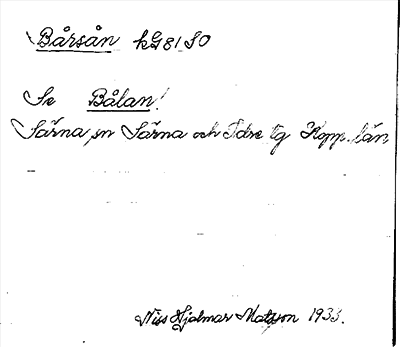 Bårsån kG81 SO
Se Bålan!
Särna sn Särna och Idre tg Kopp. län
Niss Hjalmar Matsson 1933.